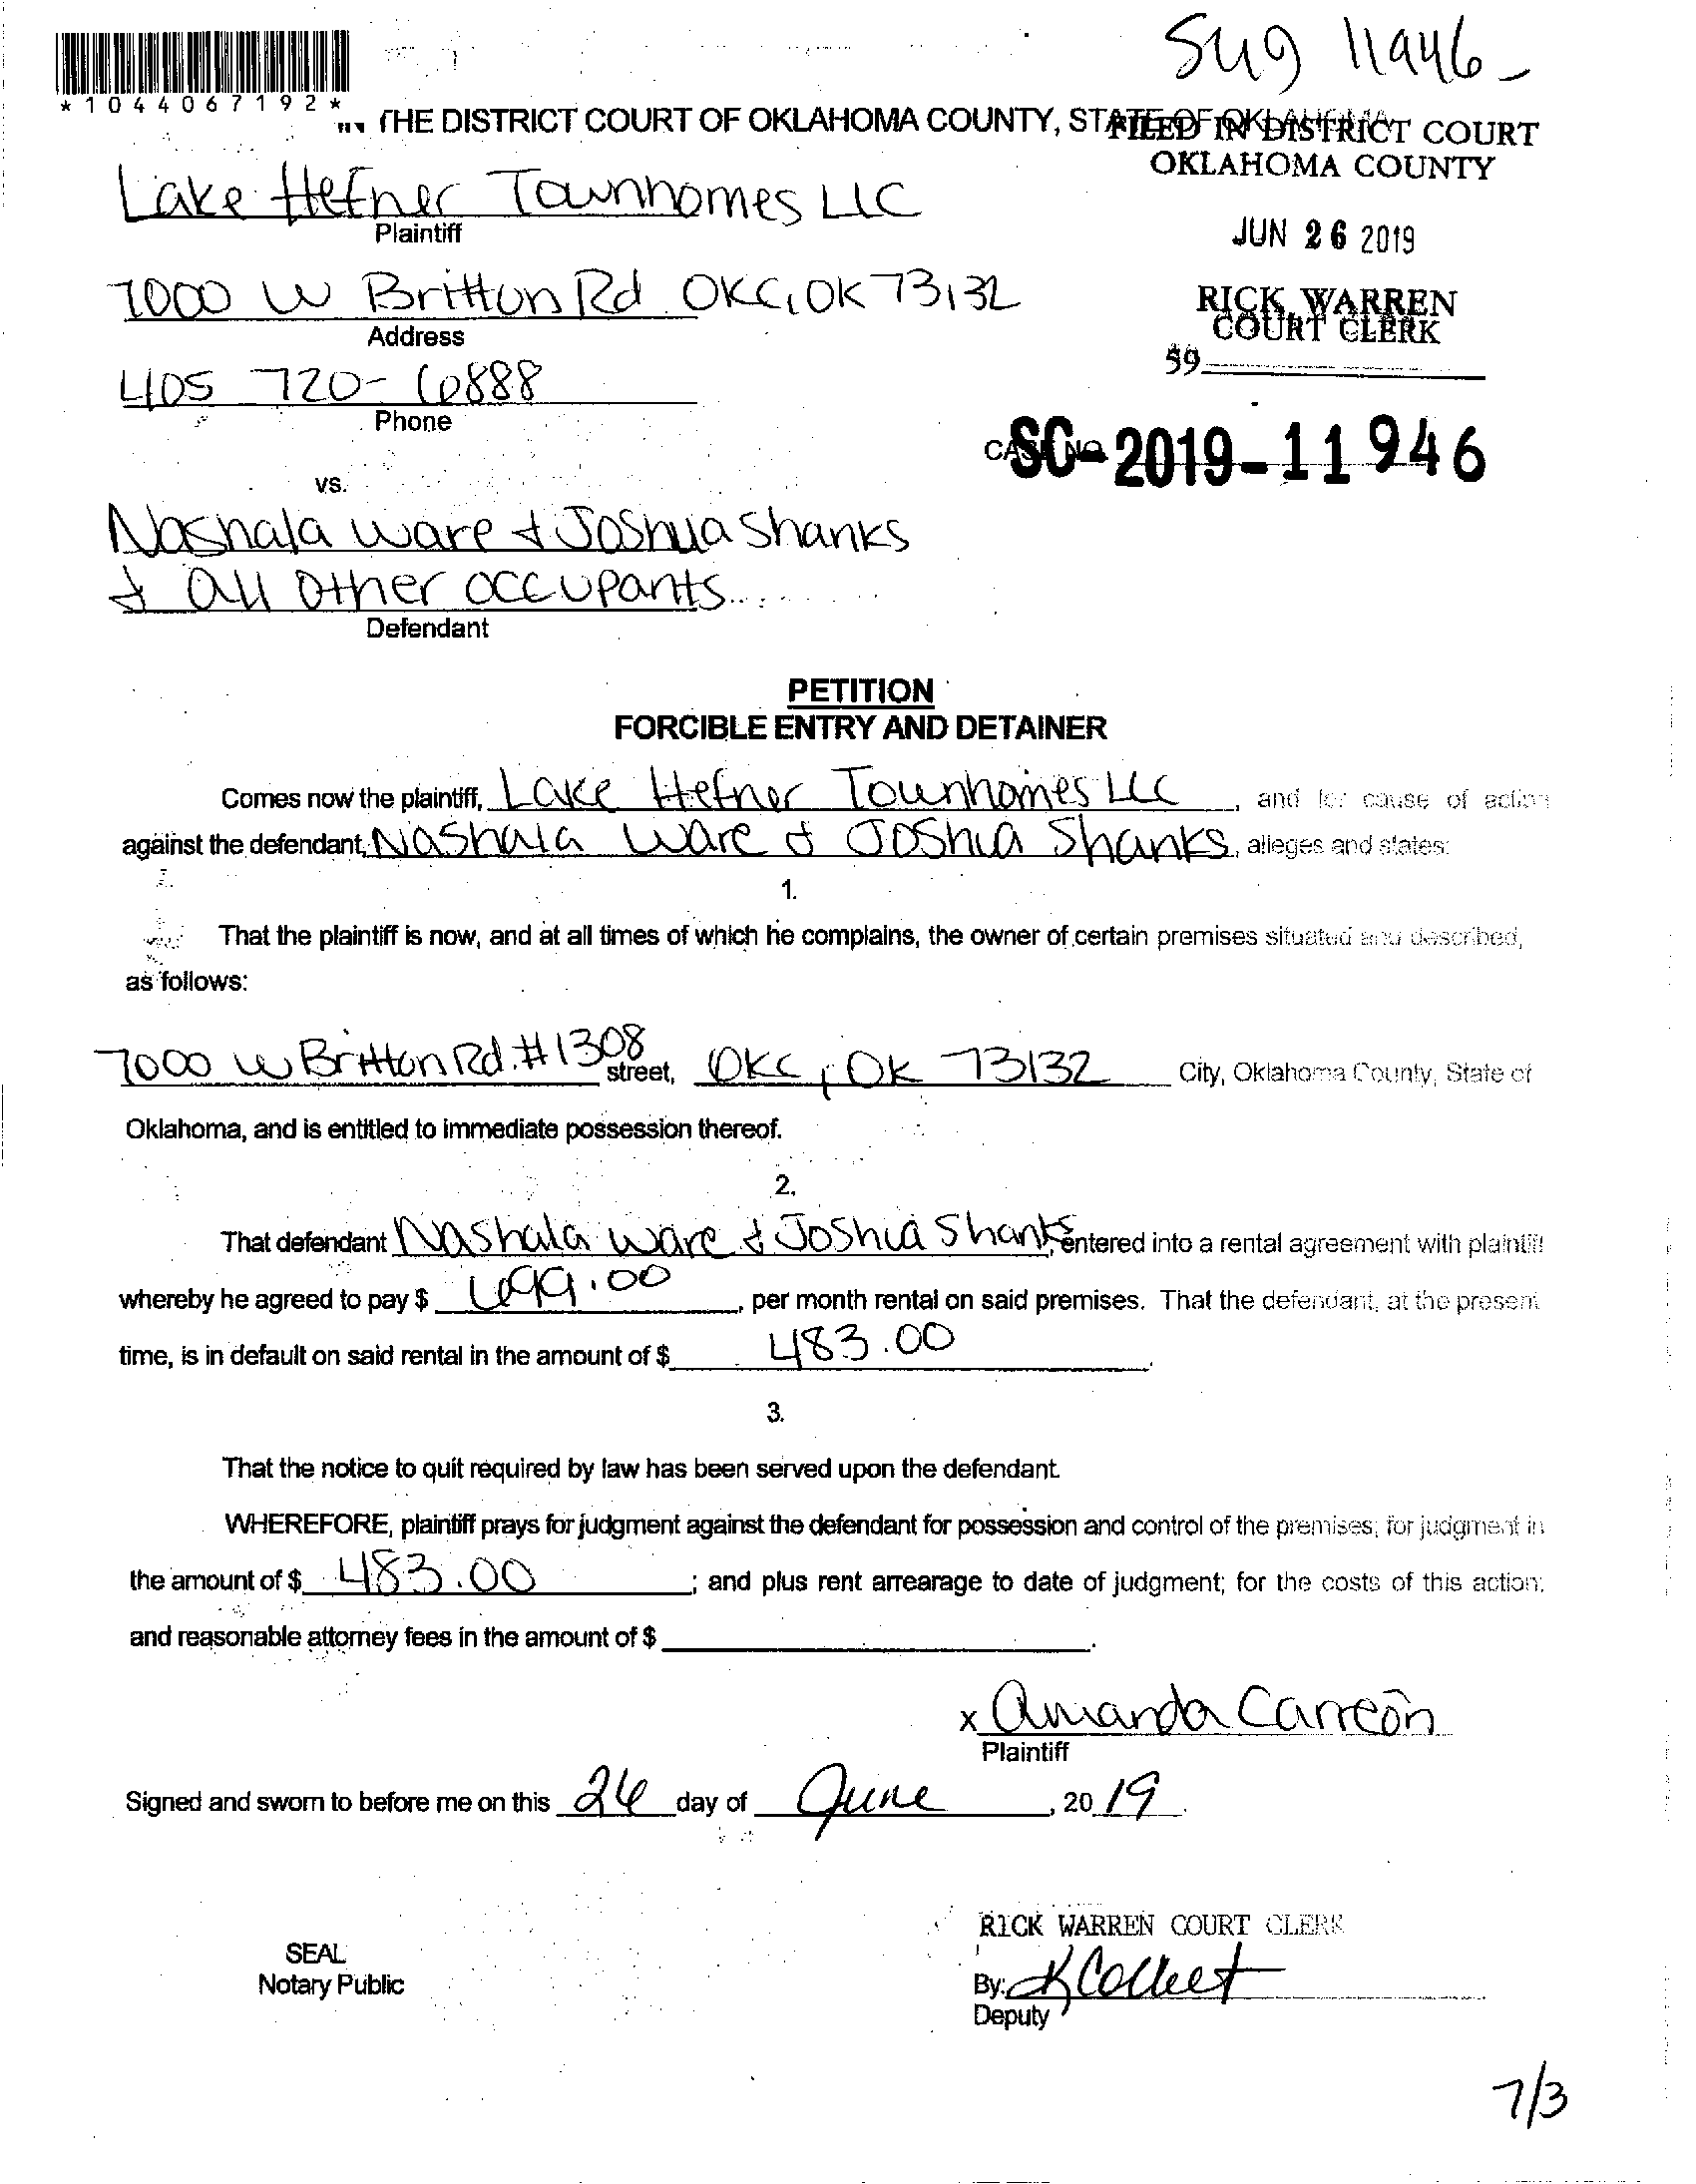 Sug 11946-
*1044067192*
THE DISTRICT COURT OF OKLAHOMA COUNTY, STATE OF OKLAHOMA
FILED IN DISTRICT COURT
OKLAHOMA COUNTY
Lake Hefner Townhomes LLC
Plaintiff
JUN 26 2019
7000 W Britton Rd OKC, OK 73132
Address
RICK WARREN
COURT CLERK
405 720-6888
Phone
59
CASE NO.
SC-2019-11946
vs.
Nashala Ware & Joshua Shanks
& all other occupants
Defendant
PETITION
FORCIBLE ENTRY AND DETAINER
Comes now the plaintiff, Lake Hefner Townhomes LLC, and for cause of action
against the defendant, Nashala Ware & Joshua Shanks, alleges and states:
1.
That the plaintiff is now, and at all times of which he complains, the owner of certain premises situated and described,
as follows:
7000 W Britton Rd. #1308 street, OKC, OK 73132 City, Oklahoma County, State of
Oklahoma, and is entitled to immediate possession thereof.
2.
That defendant Nashala Ware & Joshua Shanks entered into a rental agreement with plaintiff
whereby he agreed to pay $ 699.00, per month rental on said premises. That the defendant, at the present
time, is in default on said rental in the amount of $ 483.00.
3.
That the notice to quit required by law has been served upon the defendant.
WHEREFORE, plaintiff prays for judgment against the defendant for possession and control of the premises; for judgment in
the amount of $ 483.00; and plus rent arrearage to date of judgment; for the costs of this action;
and reasonable attorney fees in the amount of $
x Amanda Carreon
Plaintiff
Signed and sworn to before me on this 26 day of June, 2019.
RICK WARREN COURT CLERK
SEAL
Notary Public
By: K Collect
Deputy
7/3